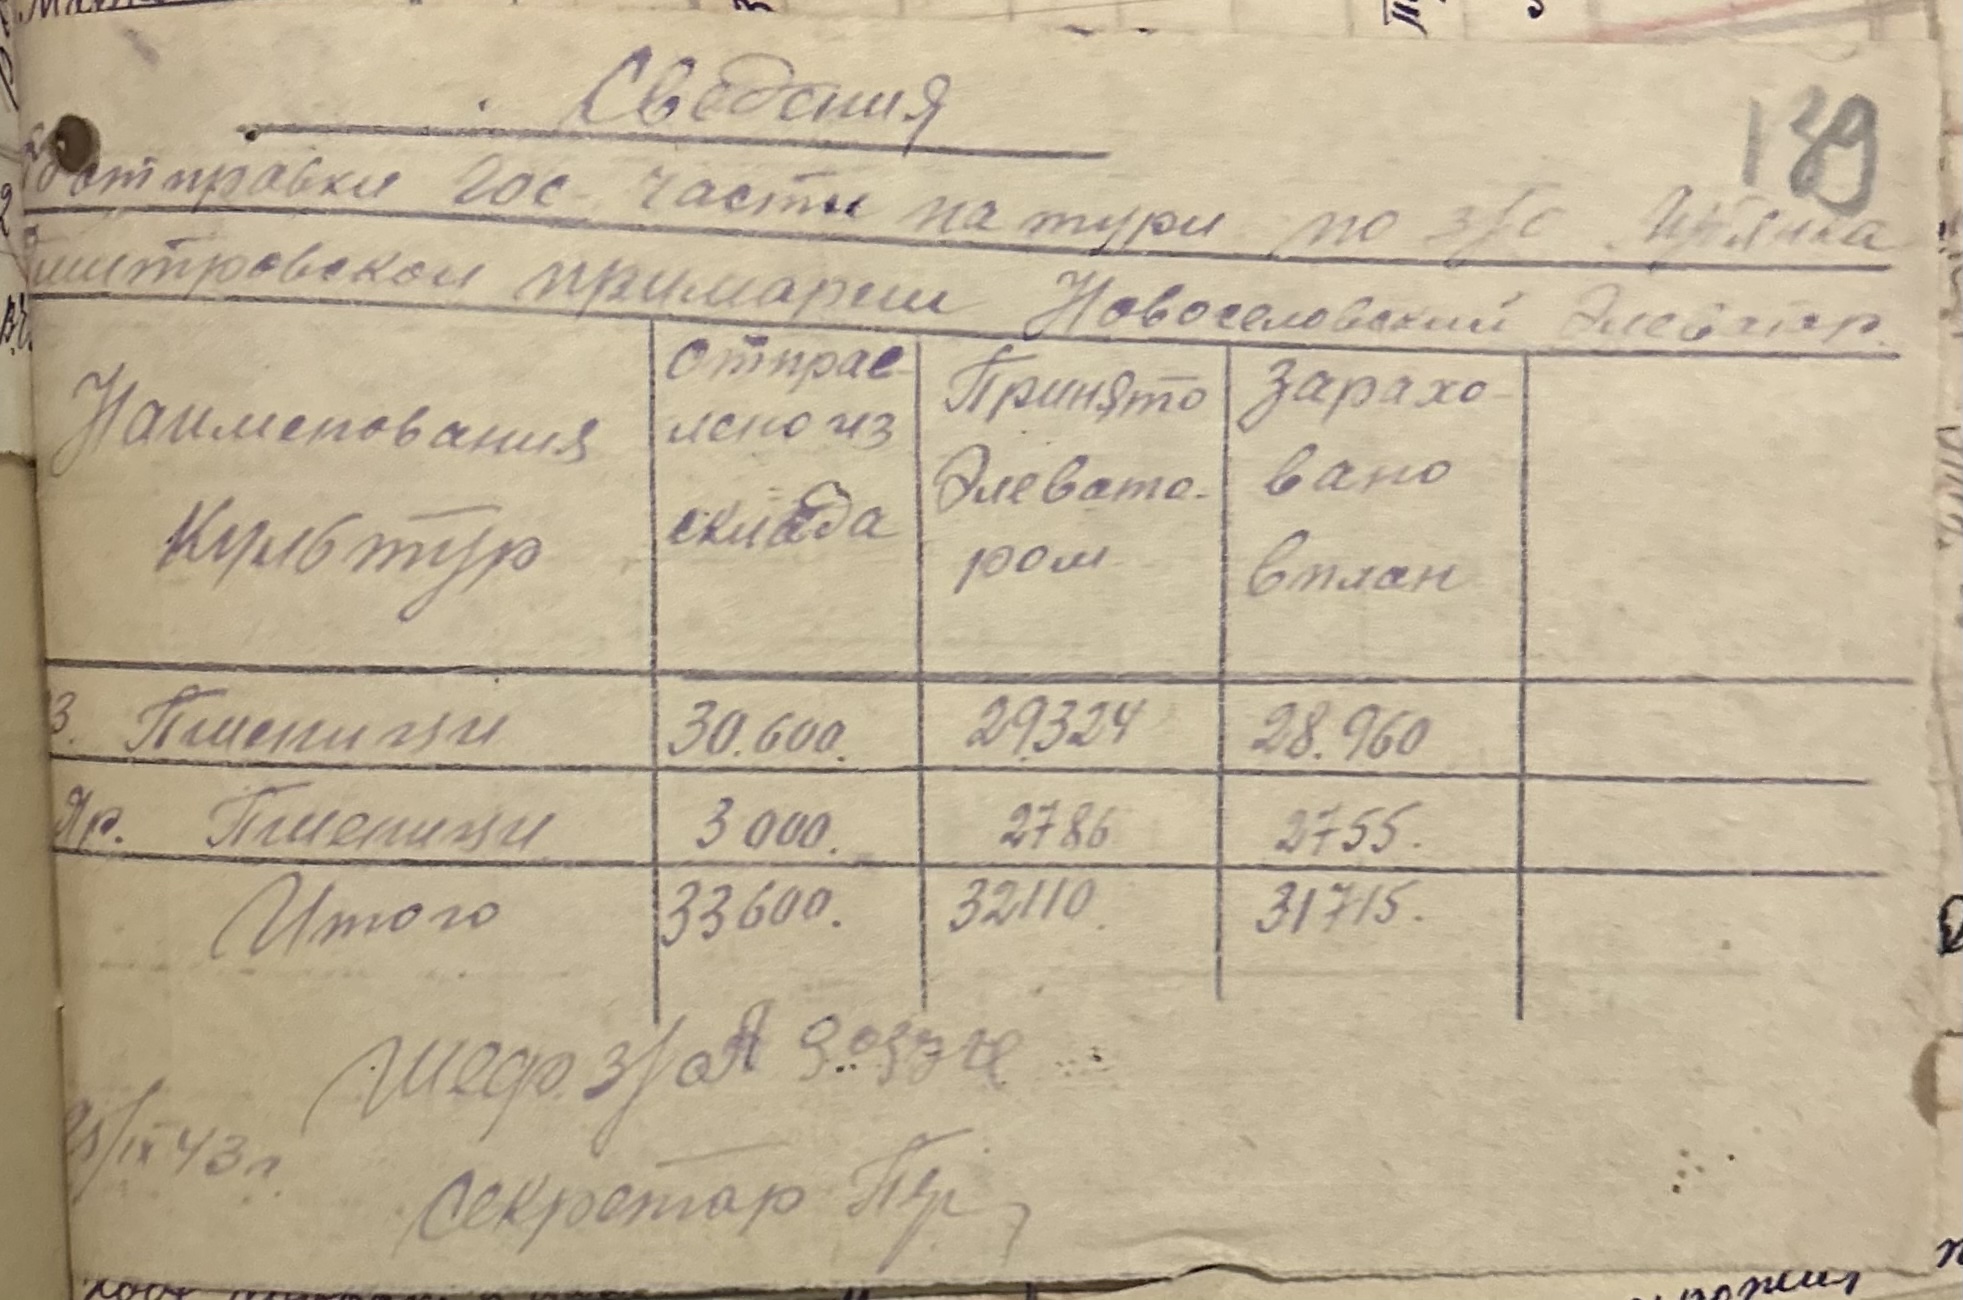 Сведения
139
отправки гос- части натури по з/о
Дмитровскои примареи Новоселовский Элеватор.
Наименования Культур
Отправлено из склада
Принято Элеватором
Зарахо-вано в план
З. Пшеници 30.600. 29324 28.960
Яр. Пшеници 3000. 2786 2755.
Итого 33600. 32110 31715.
Шеф з/о
/IX 43 г.
Секретар